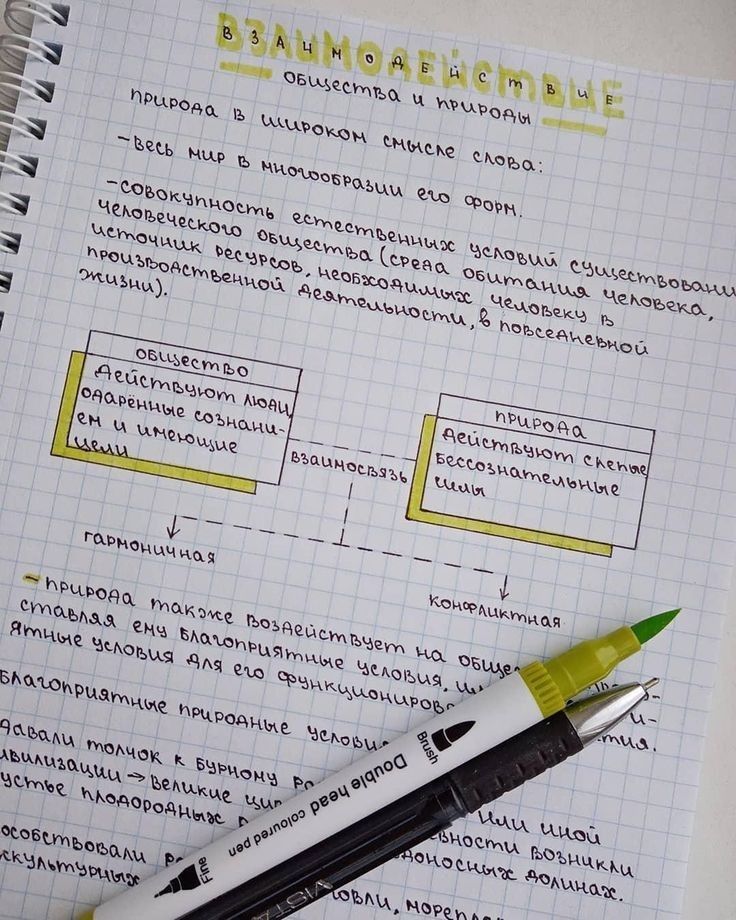 ВЗАИМОДЕЙСТВИЕ
общества и природы
природа в широком смысле слова:
-весь мир в многообразии его форм.
-совокупность естественных условий существовани
человеческого общества (среда обитания человека,
источник ресурсов, необходимых человеку в
производственной деятельности, в повседневной
жизни).
общество
действуют люди,
одарённые сознани-
ем и имеющие
цели
природа
действуют слепые
бессознательные
силы
взаимосвязь
гармоничная
конфликтная
-природа также воздействует на общес
ставляя ему благоприятные условия, и
ятные условия для его функциониров тия.
Благоприятные природные услови
давали толчок к бурному ра или иной
ивилизации → великие ци вности возникли
устье плодородных доносных долинах.
особствовали ра
скультурных овли, мореп
Brush
Double head coloured pen
Fine
VISTA